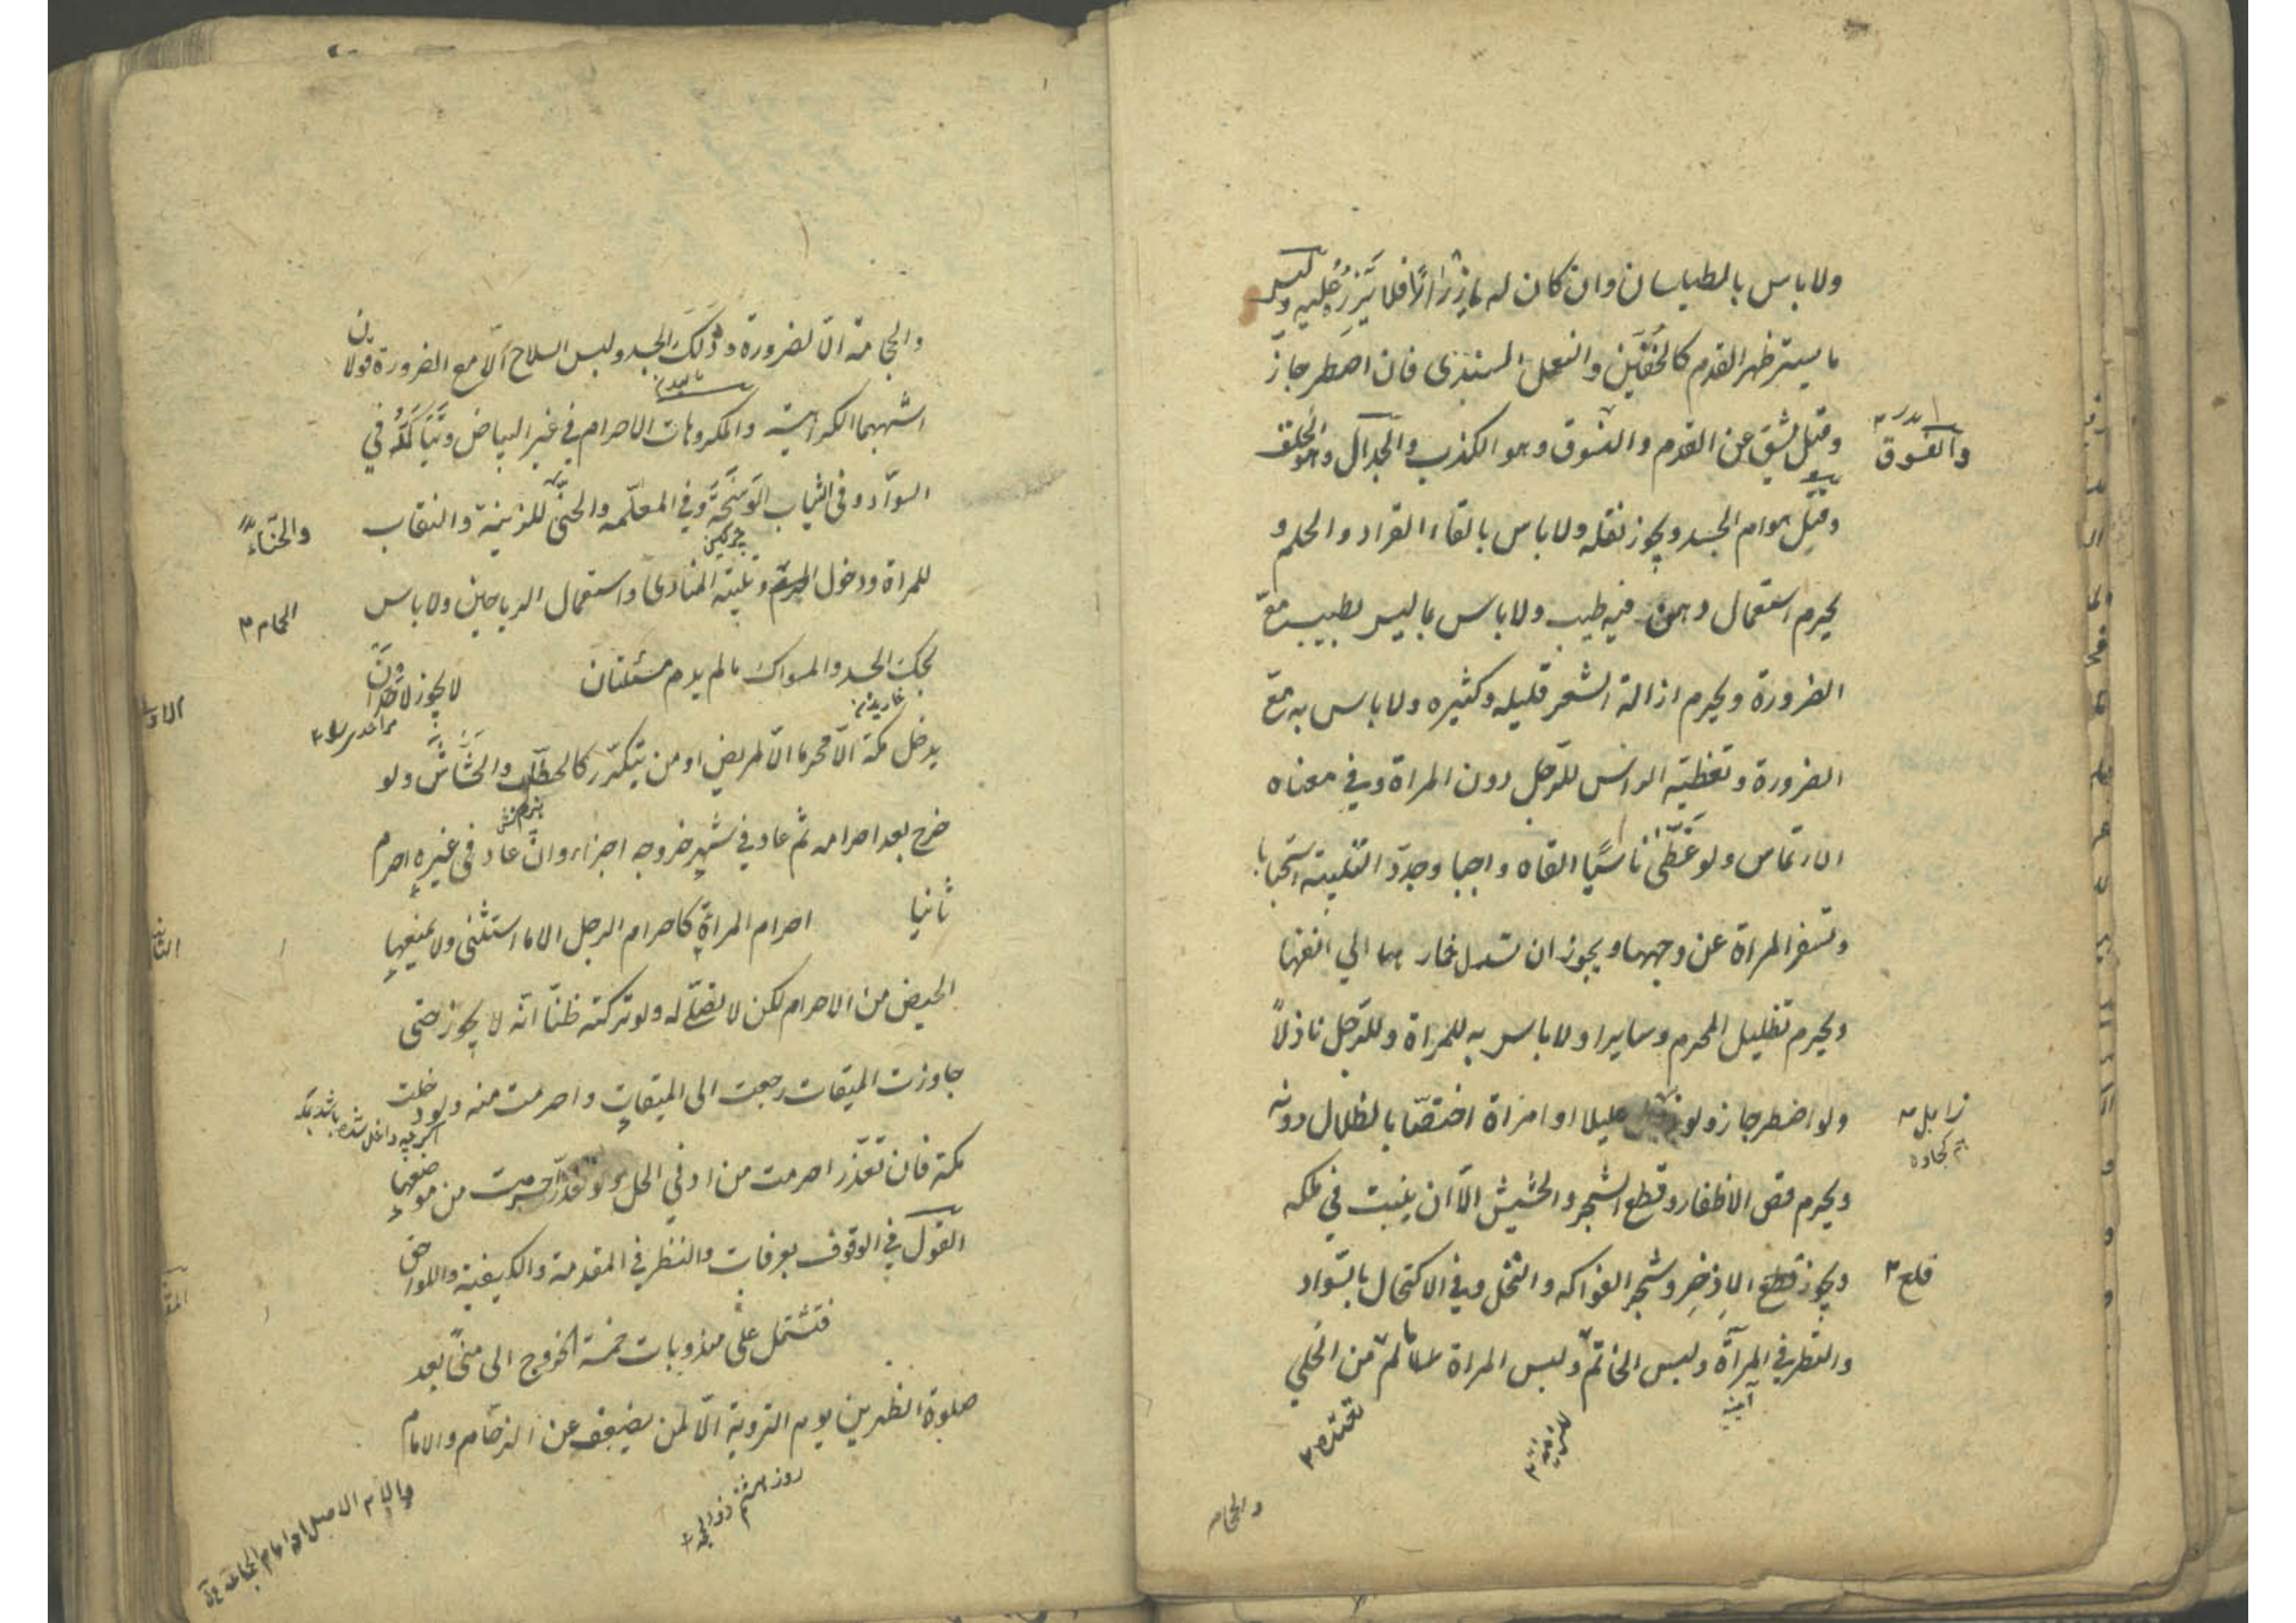 ولا باس بالطيلسان وان كان له ازرار فلا يزره عليه ولبس
ما يستر ظهر القدم كالخفين والنعل السندى فان اضطر جاز
وقيل يشق عن القدم والفسوق وهو الكذب والجدال وهو الحلف
والفسوق
وقتل هوام الجسد ويجوز نقله ولا باس بالقاء القراد والحلم و
يحرم استعمال دهن فيه طيب ولا باس بما ليس بطيب مع
الضرورة ويحرم ازالة الشعر قليله وكثيره ولا باس به مع
الضرورة وتغطية الراس للرجل دون المراة وفي معناه
الارتماس ولو غطى ناسيا القاه واجبا وجدد التلبية استحبابا
وتسفر المراة عن وجهها ويجوز ان تسدل خمارها الي انفها
ويحرم تظليل المحرم وسايرا ولا باس به للمراة وللرجل نازلا
ولو اضطر جاز ولو زامل عليلا او امراة اختصا بالظلال دونه
زامل
كجاوه
ويحرم قص الاظفار وقطع الشجر والحشيش الا ان ينبت في ملكه
ويجوز قطع الاذخر وشجر الفواكه والنخل وفي الاكتحال بالسواد
قلع
والنظر في المرآة ولبس الخاتم ولبس المراة ما لم من الحلي
للزينة
تعتده
والحجامه
والحجامة الا لضرورة ودلك الجسد ولبس السلاح الا مع الضرورة قولان
اشبههما الكراهية والمكروهات الاحرام في غير البياض ويتاكد في
السواد وفى الثياب الوسخة وفي المعلمه والحنى للزينة والنقاب
چركين
والحناء
للمراة ودخول الحمام وتلبية المنادى واستعمال الرياحين ولا باس
الحمام
بحك الجسد والسواك ما لم يدم مسئلتان لا يجوز لاحد ان
خاريدن
يدخل مكة الا محرما الا لمريض او من يتكرر كالحطاب والحشاش ولو
خرج بعد احرامه ثم عاد في شهر خروجه اجزاء وان عاد في غيره احرم
ثانيا احرام المراة كاحرام الرجل الا ما استثنى ولا يمنعها
الحيض من الاحرام لكن لا تصلى له ولو تركته ظنا انه لا يجوز حتى
جاوزت الميقات رجعت الى الميقات واحرمت منه ولو دخلت
مكة فان تعذر احرمت من ادني الحل ولو تعذر احرمت من موضعها
القول في الوقوف بعرفات والنظر في المقدمة والكيفية واللواحق
فتشتمل على مندوبات خمسة الخروج الى منى بعد
صلوة الظهرين يوم التروية الا لمن يضعف عن الزحام والامام
روز هشتم ذو الحجه